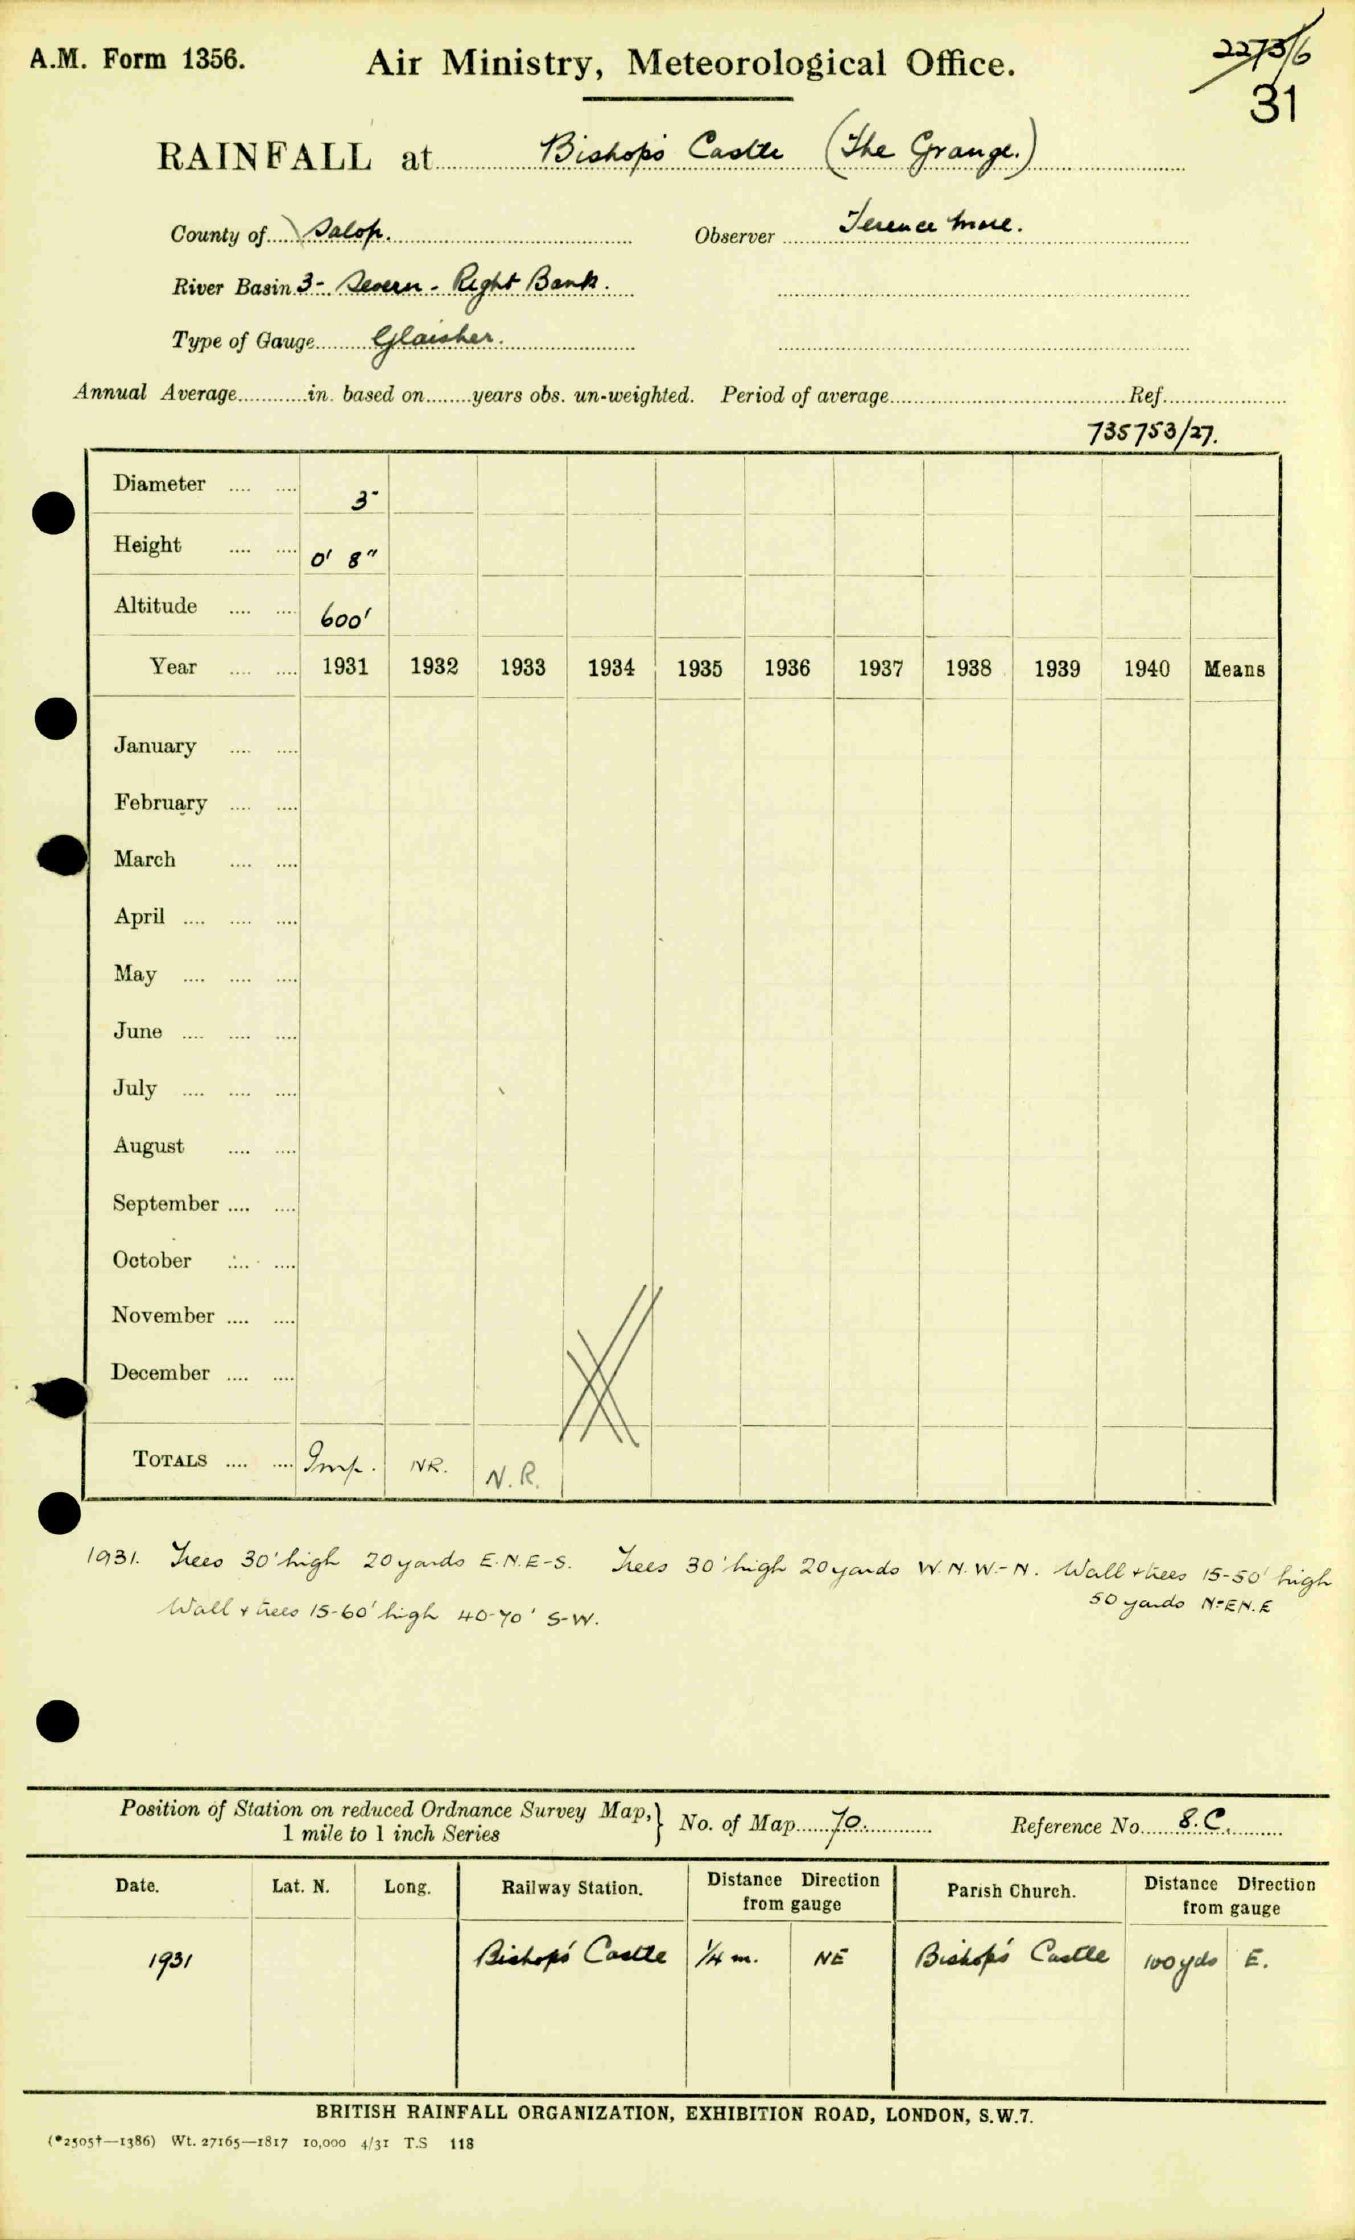 A.M. Form 1356. Air Ministry, Meteorological Office. 2273/6
31
RAINFALL at Bishop's Castle (The Grange.)
County of Salop. Observer Terence More.
River Basin 3- Severn - Right Bank.
Type of Gauge Glaisher.
Annual Average............in. based on........years obs. un-weighted. Period of average........ Ref........
735753/27.
Diameter .... .... 3"
Height .... .... 0' 8"
Altitude .... .... 600'
Year .... .... 1931 1932 1933 1934 1935 1936 1937 1938 1939 1940 Means
January .... ....
February .... ....
March .... ....
April .... .... ....
May .... .... ....
June .... .... ....
July .... .... ....
August .... ....
September .... ....
October .... ....
November .... ....
December .... ....
TOTALS .... .... Imp. NR. N.R.
1931. Trees 30' high 20 yards E.N.E-S. Trees 30' high 20 yards W.N.W.-N. Wall + trees 15-50' high
50 yards N-EN.E
Wall + trees 15-60' high 40-70' S-W.
Position of Station on reduced Ordnance Survey Map, } No. of Map 70. Reference No. 8.C.
1 mile to 1 inch Series
Date. Lat. N. Long. Railway Station. Distance Direction from gauge Parish Church. Distance Direction from gauge
1931 Bishop's Castle 1/4 m. NE Bishop's Castle 100 yds E.
BRITISH RAINFALL ORGANIZATION, EXHIBITION ROAD, LONDON, S.W.7.
(*2505†—1386) Wt. 27165—1817 10,000 4/31 T.S 118